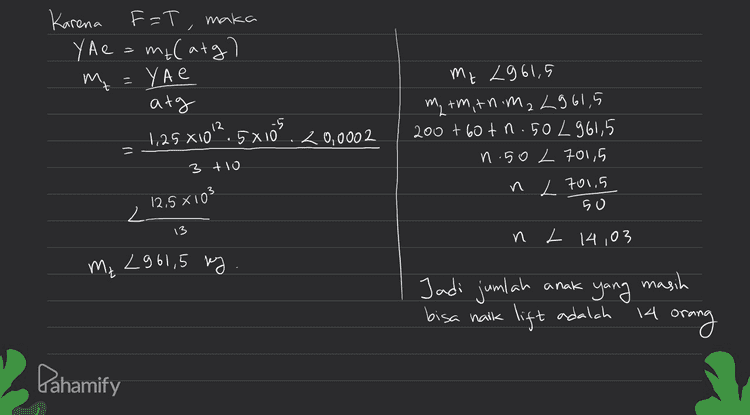 Karena F=T, maka
YAe = mt(a+g)
mt = YAe
a+g
= 1,25 x10^12 . 5 x 10^-5 . < 0,0002
3 +10
< 12,5 x 10^3
13
mt < 961,5 kg.
mt < 961,5
mL+m1+n.m2 < 961,5
200 + 60 + n . 50 < 961,5
n . 50 < 701,5
n < 701,5
50
n < 14,03
Jadi jumlah anak yang masih
bisa naik lift adalah 14 orang
Pahamify